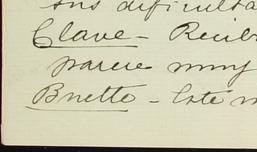 sus dificulta
Clave - Recib
parece muy
Bnetto - Este m